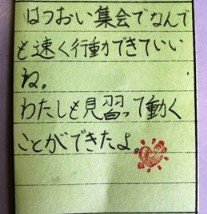 はつおい集会でなんで
も速く行動できていい
ね。
わたしも見習って働く
ことができたよ。